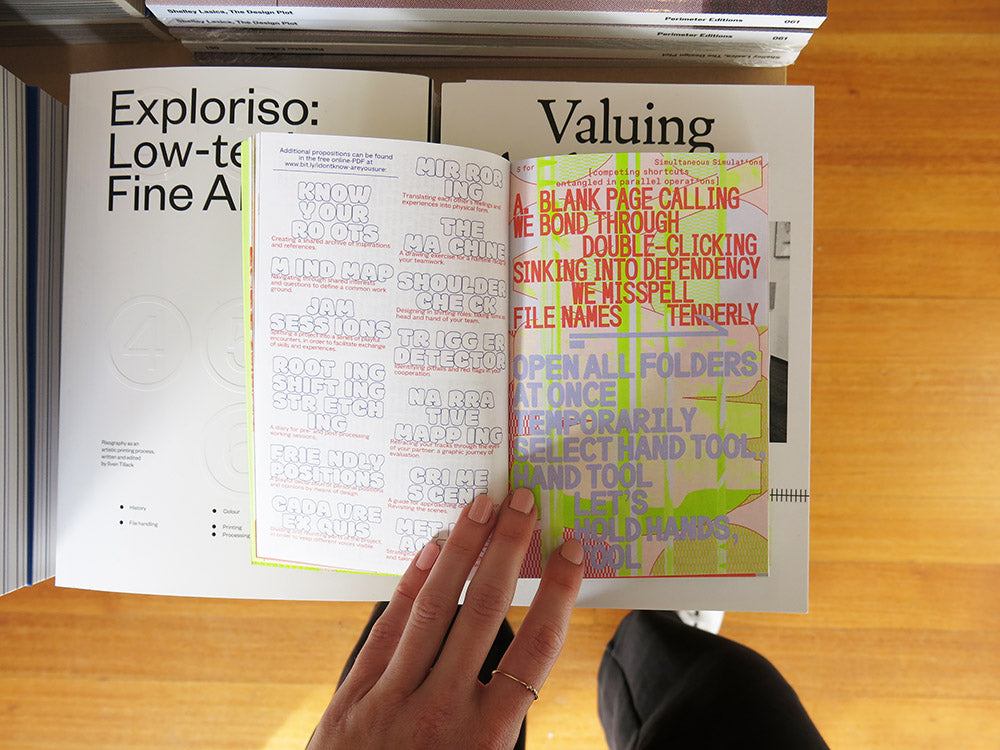 Shelley Lasica, The Design Plot
Perimeter Editions 061
Shelley Lasica, The Design Plot
Perimeter Editions 061
Perimeter Editions
Shelley Lasica, The Design Plot
Exploriso:
Low-te
Fine A
4
Risography as an
artistic printing process,
written and edited
by Sven Tillack
History
File handling
Colour
Printing
Processing
Valuing
Additional propositions can be found
in the free online-PDF at
www.bit.ly/idontknow-areyousure:
KNOW
YOUR
RO OTS
Creating a shared archive of inspirations
and references.
M IND MAP
Navigating through shared interests
and questions to define a common work
ground.
JAM
SESSIONS
Splitting a project into a series of playful
encounters, in order to facilitate exchange
of skills and experiences.
ROOT ING
SHIFT ING
STR ETCH
ING
A diary for pre- and post-processing
working sessions.
FRIE NDLY
POSITIONS
and opinions by means of design
CADA VRE
EX QUIS
parts of the project,
in order to keep different voices visible
MIR ROR
ING
Translating each other's feelings and
experiences into physical form.
THE
MA CHINE
A drawing exercise for a
your teamwork.
SHOULDER
CHE CK
Designing in shifting roles: taking turns as
head and hand of your team.
TR IGG ER
DETECTOR
Identifying pitfalls and red flags in your
cooperation.
NA RRA
TIVE
MAPP ING
Retracing your tracks through the eyes
of your partner: a graphic journey of
evaluation.
CRI ME
S CENE
A guide for approaching
Revisiting the scenes.
MET
Strategic
and take
S for
Simultaneous Simulat°ons
[competing shortcuts
entangled in parallel operat°ons]
A. BLANK PAGE CALLING
WE BOND THROUGH
DOUBLE-CLICKING
SINKING INTO DEPENDENCY
WE MISSPELL
FILE NAMES TENDERLY
OPEN ALL FOLDERS
AT ONCE
TEMPORARILY
SELECT HAND TOOL,
HAND TOOL
LET'S
HOLD HANDS,
TOOL